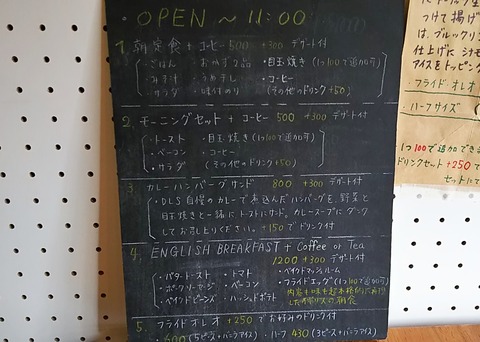 ・OPEN ～ 11:00
1. 朝定食 + コーヒー 500 +300 デザート付
・ごはん ・おかず2品 ・目玉焼き(1つ100で追加可)
・みそ汁 ・うめ干し ・コーヒー
・サラダ ・味付のり (その他のドリンク+50)
2. モーニングセット + コーヒー 500 +300 デザート付
・トースト ・目玉焼き(1つ100で追加可)
・ベーコン ・コーヒー
・サラダ (その他のドリンク+50)
3. カレーハンバーグサンド 800 +300 デザート付
・DLS自慢のカレーで煮込んだハンバーグを、野菜と
目玉焼きと一緒にトーストにサンド。カレースープにダンク
してお召し上りください。+150でドリンク付
4. ENGLISH BREAKFAST + Coffee or Tea
1200 +300 デザート付
・バタートースト ・トマト ・ベイクドマッシュルーム
・ポークソーセージ ・ベーコン ・フライドエッグ(1つ100で追加可)
・ベイクドビーンズ ・ハッシュドポテト
5. フライドオレオ +250でお好みのドリンク付
600(5ピース+バニラアイス) ・ハーフ 430(3ピース+バニラアイス)
つけて揚げ
は、ブルックリン
仕上げにシナモ
アイスをトッピング
・フライドオレオ
・ハーフサイズ
1つ100で追加でき
ドリンクセット+250で
セットに